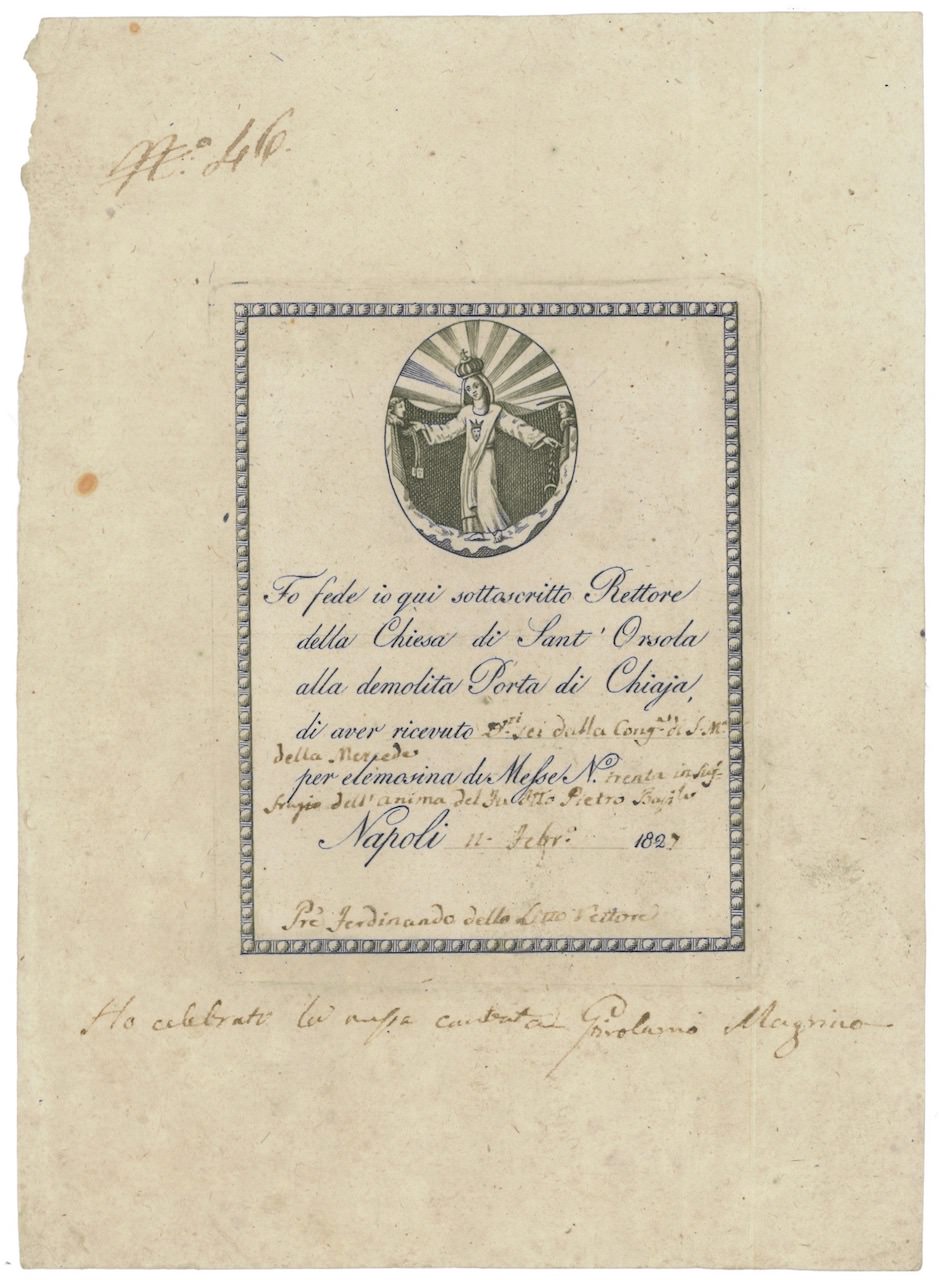 N.º 46.
Fo fede io qui sottoscritto Rettore
della Chiesa di Sant' Orsola
alla demolita Porta di Chiaja,
di aver ricevuto D.ri sei dalla Cong.ne di S. M.a
della Mercede
per elemosina di Messe N.º trenta in suf-
fragio dell'anima del Fu Pietro
Napoli 11 Febr.o 1827
Ferdinando dello Rettore
Ho celebrato la messa cantata Girolamo Magrino